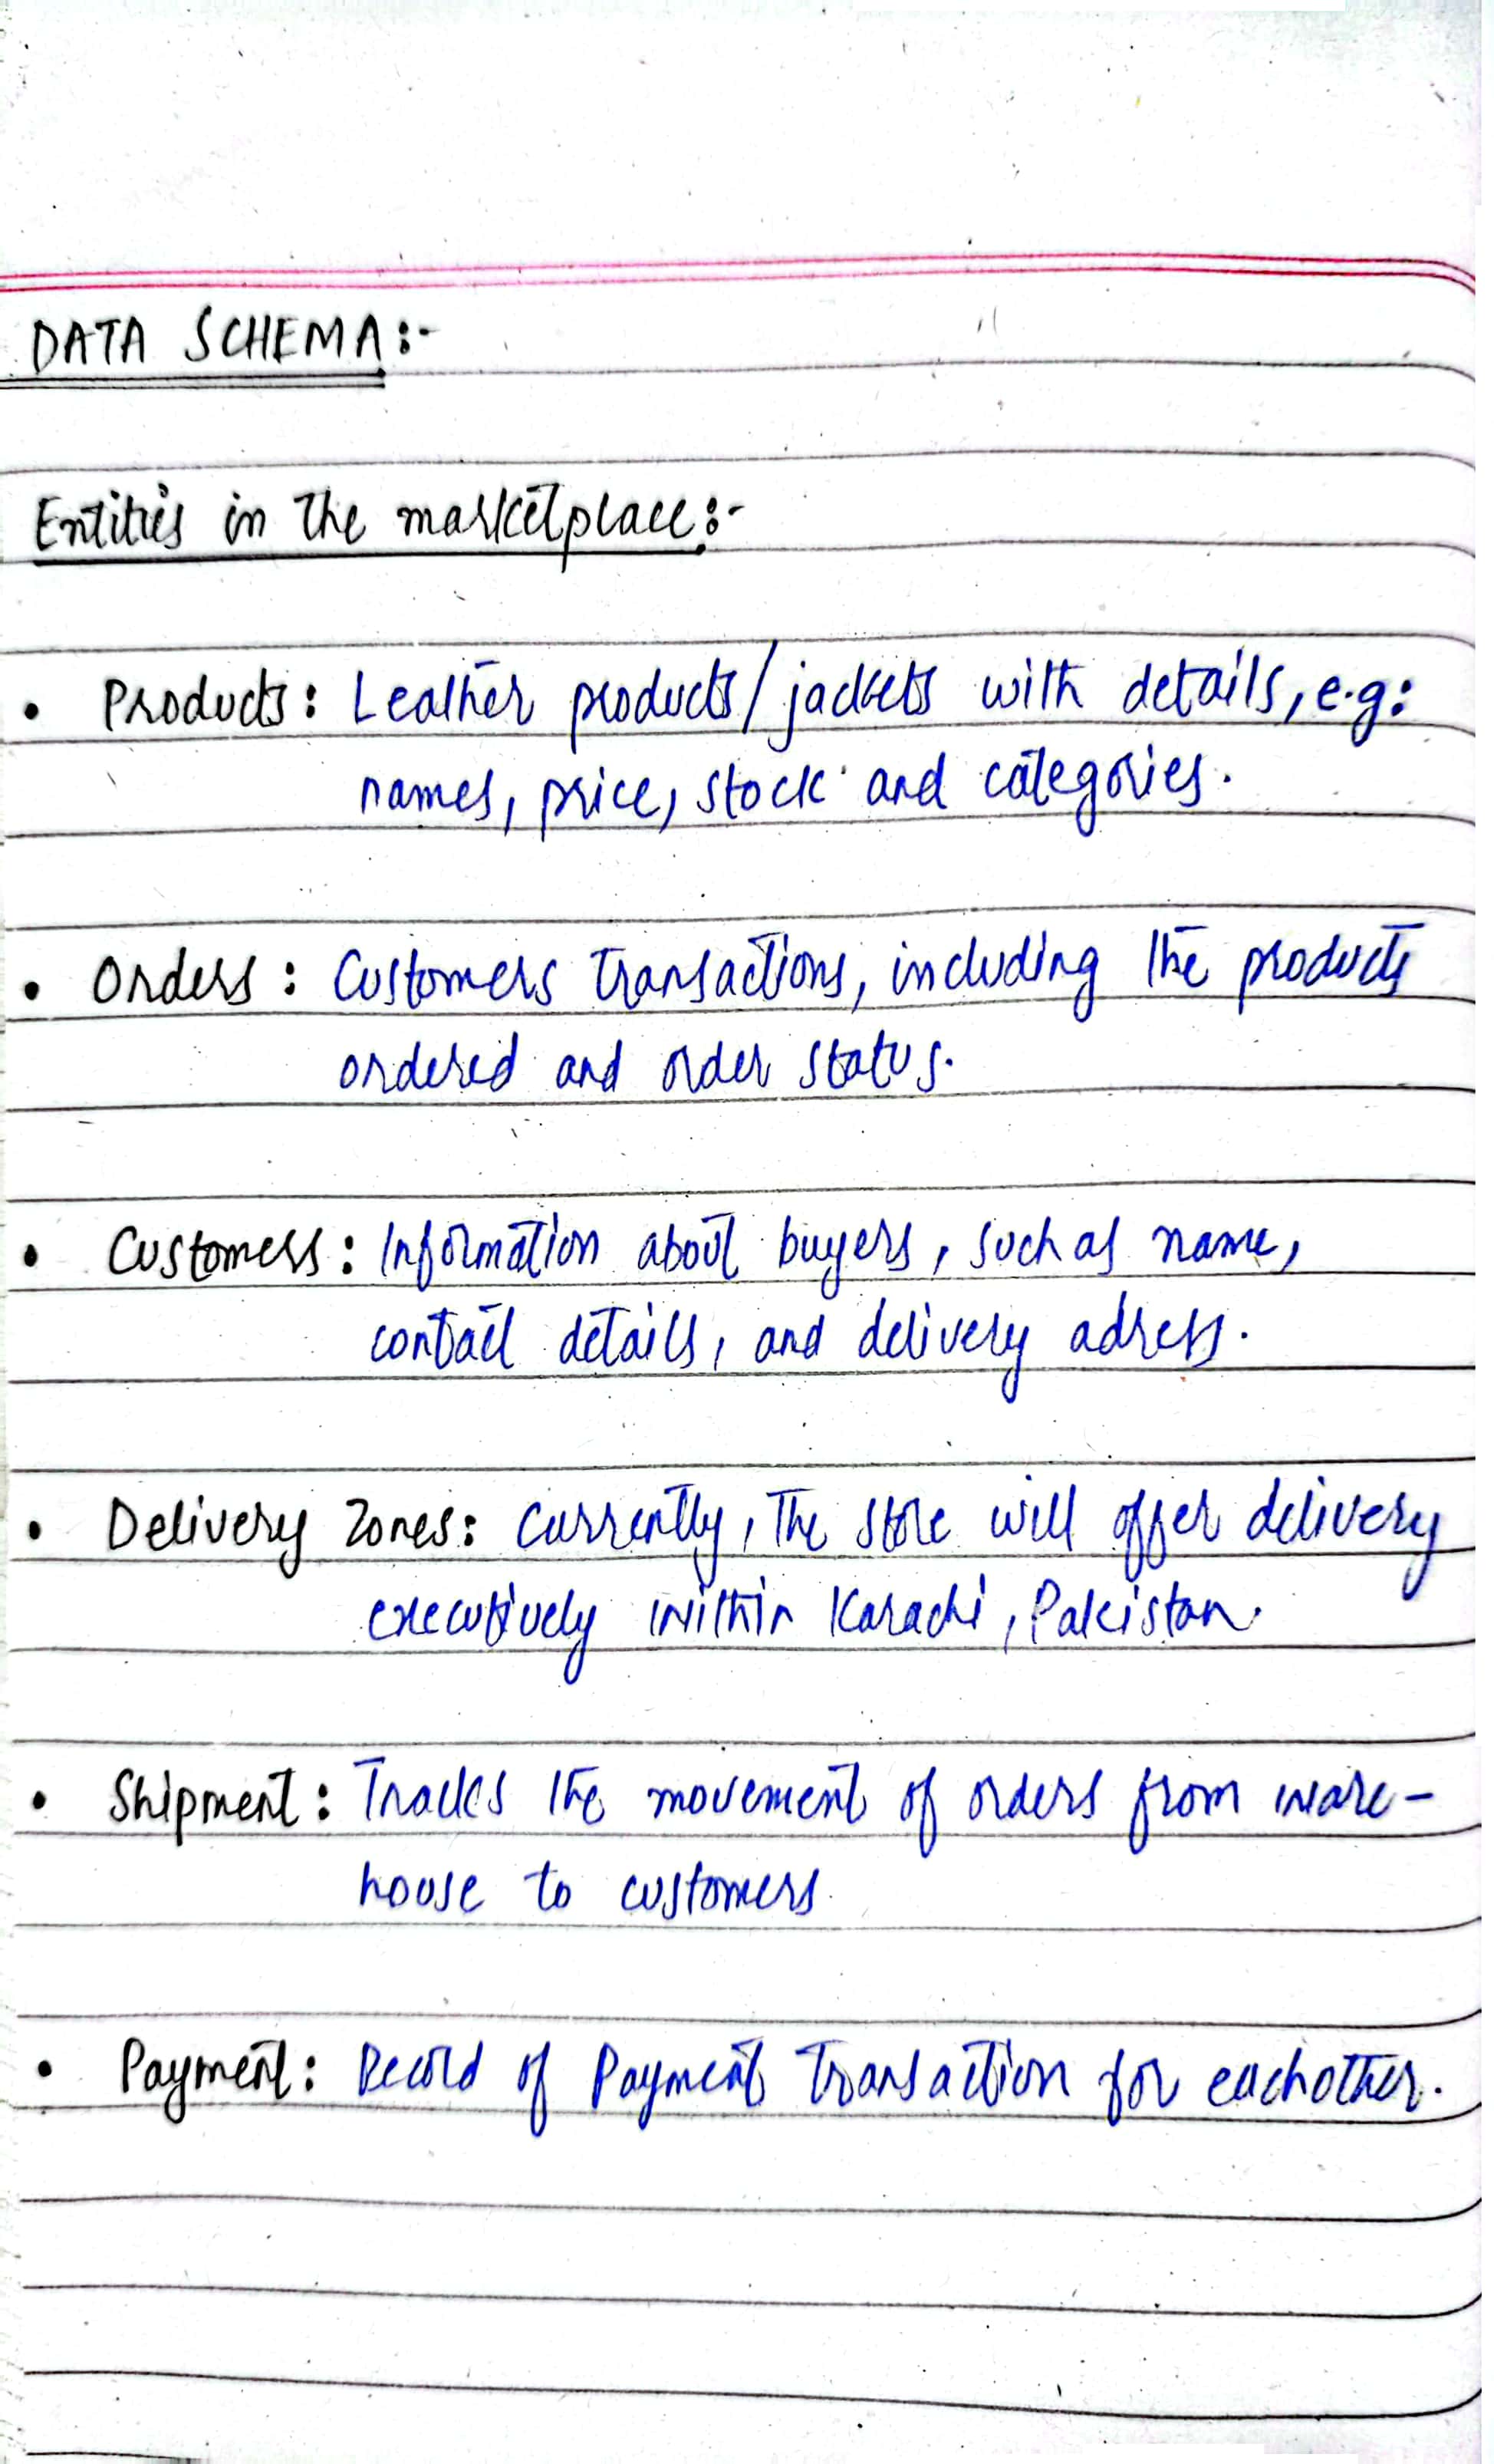 DATA SCHEMA:-
Entities in the marketplace:-
• Products: Leather products/jackets with details, e.g:
names, price, stock and categories.
• Orders: Customers transactions, including the products
ordered and order status.
• Customers: Information about buyers, such as name,
contact details, and delivery adress.
• Delivery Zones: Currently, The store will offer delivery
executively within Karachi, Pakistan.
• Shipment: Tracks the movement of orders from ware-
house to customers
• Payment: Record of Payment Transaction for eachother.